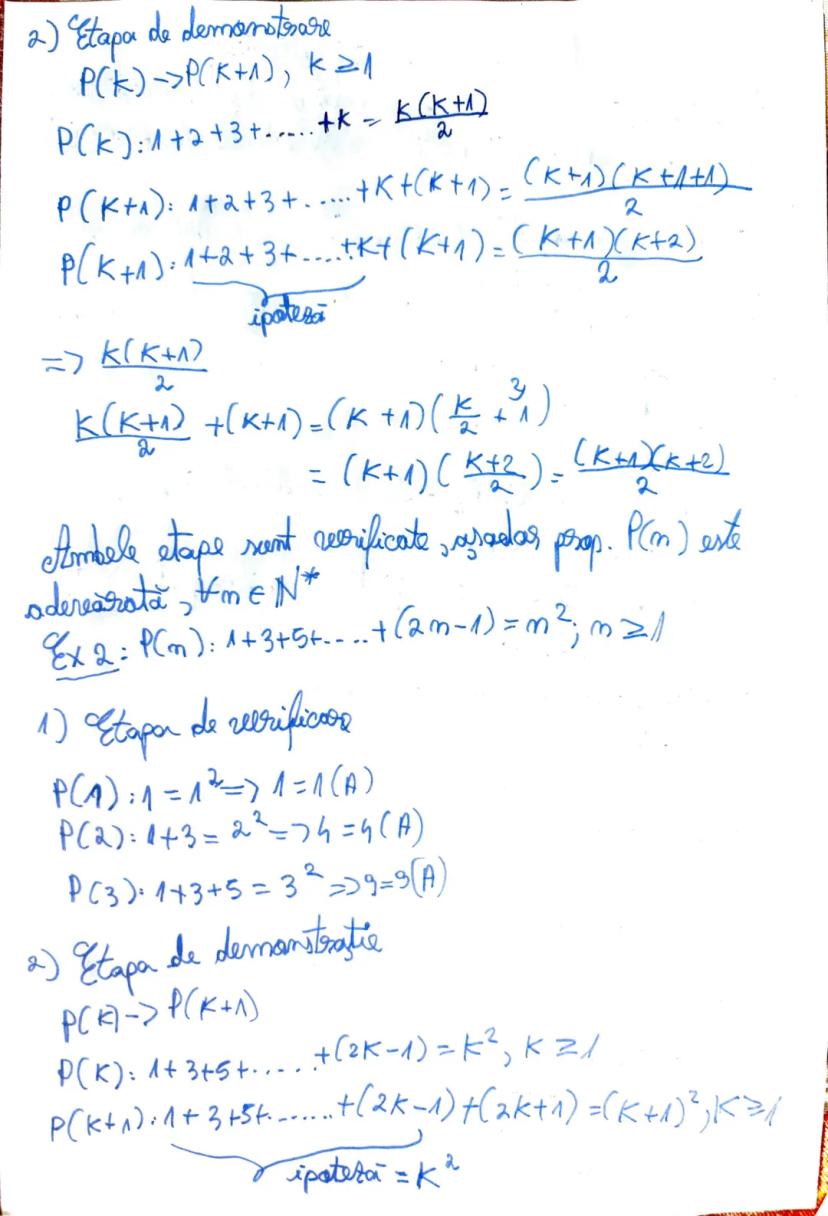 2) Etapa de demonstrare
P(k)->P(k+1), k≥1
P(k): 1+2+3+.....+k = k(k+1)/2
P(k+1): 1+2+3+.....+k+(k+1) = (k+1)(k+1+1)/2
P(k+1): 1+2+3+....+k+(k+1) = (k+1)(k+2)/2
ipoteză
=> k(k+1)/2
k(k+1)/2 +(k+1) = (k+1)(k/2 + ²⁾1)
= (k+1)(k+2/2) = (k+1)(k+2)/2
Ambele etape sunt verificate, așadar prop. P(n) este
adevărată, ∀n∈N*
Ex 2: P(n): 1+3+5+....+(2n-1) = n²; n≥1
1) Etapa de verificare
P(1): 1 = 1² => 1=1(A)
P(2): 1+3 = 2² => 4=4(A)
P(3): 1+3+5 = 3² => 9=9(A)
2) Etapa de demonstrație
P(k)-> P(k+1)
P(k): 1+3+5+.....+(2k-1) = k², k≥1
P(k+1): 1+3+5+.......+(2k-1)+(2k+1) = (k+1)², k≥1
ipoteză = k²